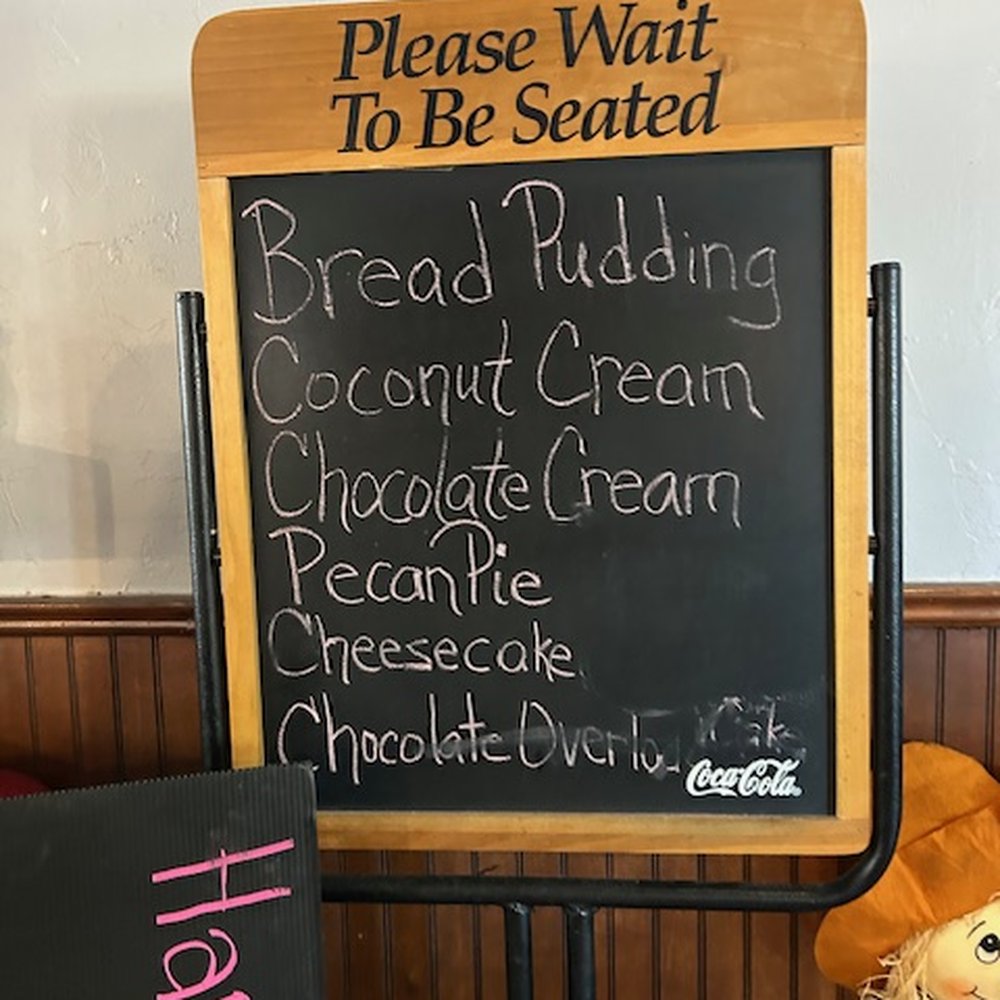 Please Wait
To Be Seated
Bread Pudding
Coconut Cream
Chocolate Cream
Pecan Pie
Cheesecake
Chocolate Cake
Coca-Cola